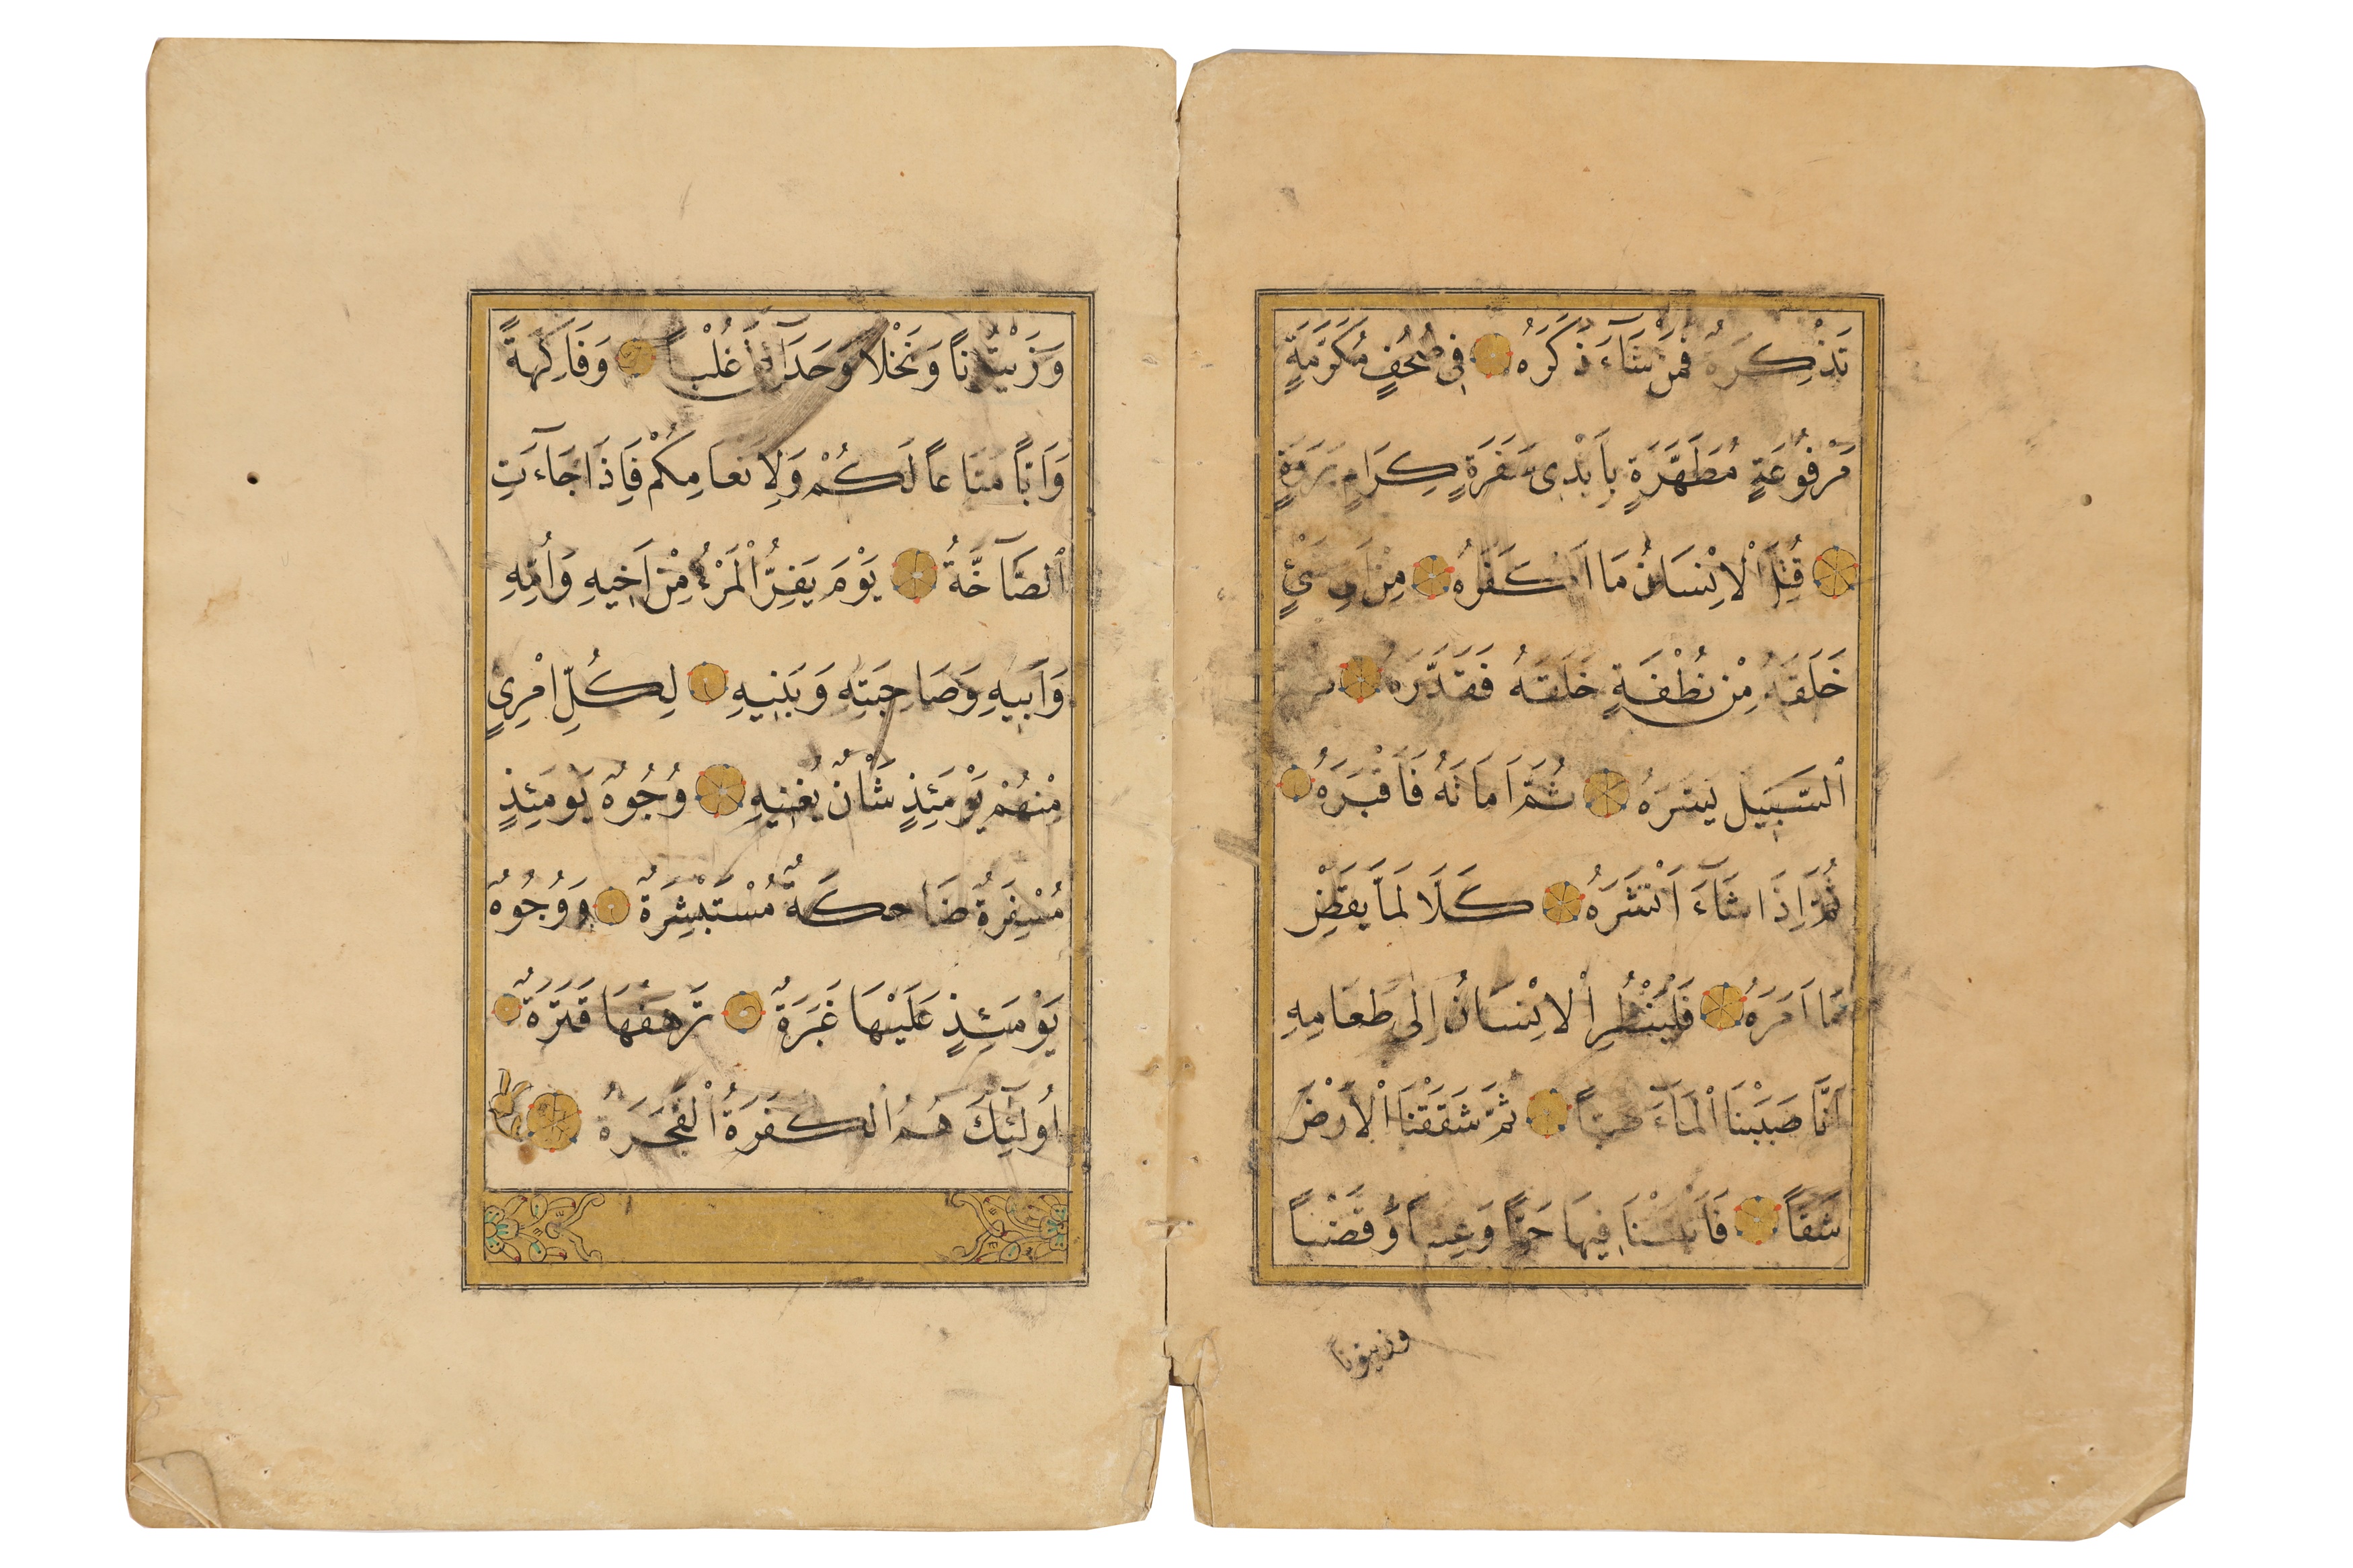 تَذْكِرَةٌ فَمَنْ شَآءَ ذَكَرَهُ فِى صُحُفٍ مُكَرَّمَةٍ
مَرْفُوعَةٍ مُطَهَّرَةٍ بِاَيْدِى سَفَرَةٍ كِرَامٍ بَرَرَةٍ
قُتِلَ اْلاِنْسَانُ مَا اَكْفَرَهُ مِنْ اَىِّ شَئٍ
خَلَقَهُ مِنْ نُطْفَةٍ خَلَقَهُ فَقَدَّرَهُ
السَّبِيلَ يَسَّرَهُ ثُمَّ اَمَاتَهُ فَاَقْبَرَهُ
ثُمَّ اِذَا شَآءَ اَنْشَرَهُ كَلَّا لَمَّا يَقْضِ
مَا اَمَرَهُ فَلْيَنْظُرِ اْلاِنْسَانُ اِلٰى طَعَامِهِ
اَنَّا صَبَبْنَا اْلمَآءَ صَبّاً ثُمَّ شَقَقْنَا اْلاَرْضَ
شَقّاً فَاَنْبَتْنَا فِيهَا حَبّاً وَعِنَباً وَقَضْباً
وزيتونا
وَزَيْتُوناً وَنَخْلاً وَحَدَآئِقَ غُلْباً وَفَاكِهَةً
وَاَبّاً مَتَاعاً لَكُمْ وَلِاَنْعَامِكُمْ فَاِذَا جَآءَتِ
الصَّآخَّةُ يَوْمَ يَفِرُّ اْلمَرْءُ مِنْ اَخِيهِ وَاُمِّهِ
وَاَبِيهِ وَصَاحِبَتِهِ وَبَنِيهِ لِكُلِّ امْرِئٍ
مِنْهُمْ يَوْمَئِذٍ شَأْنٌ يُغْنِيهِ وُجُوهٌ يَوْمَئِذٍ
مُسْفِرَةٌ ضَاحِكَةٌ مُسْتَبْشِرَةٌ وَوُجُوهٌ
يَوْمَئِذٍ عَلَيْهَا غَبَرَةٌ تَرْهَقُهَا قَتَرَةٌ
اُولٰٓئِكَ هُمُ الْكَفَرَةُ اْلفَجَرَةُ